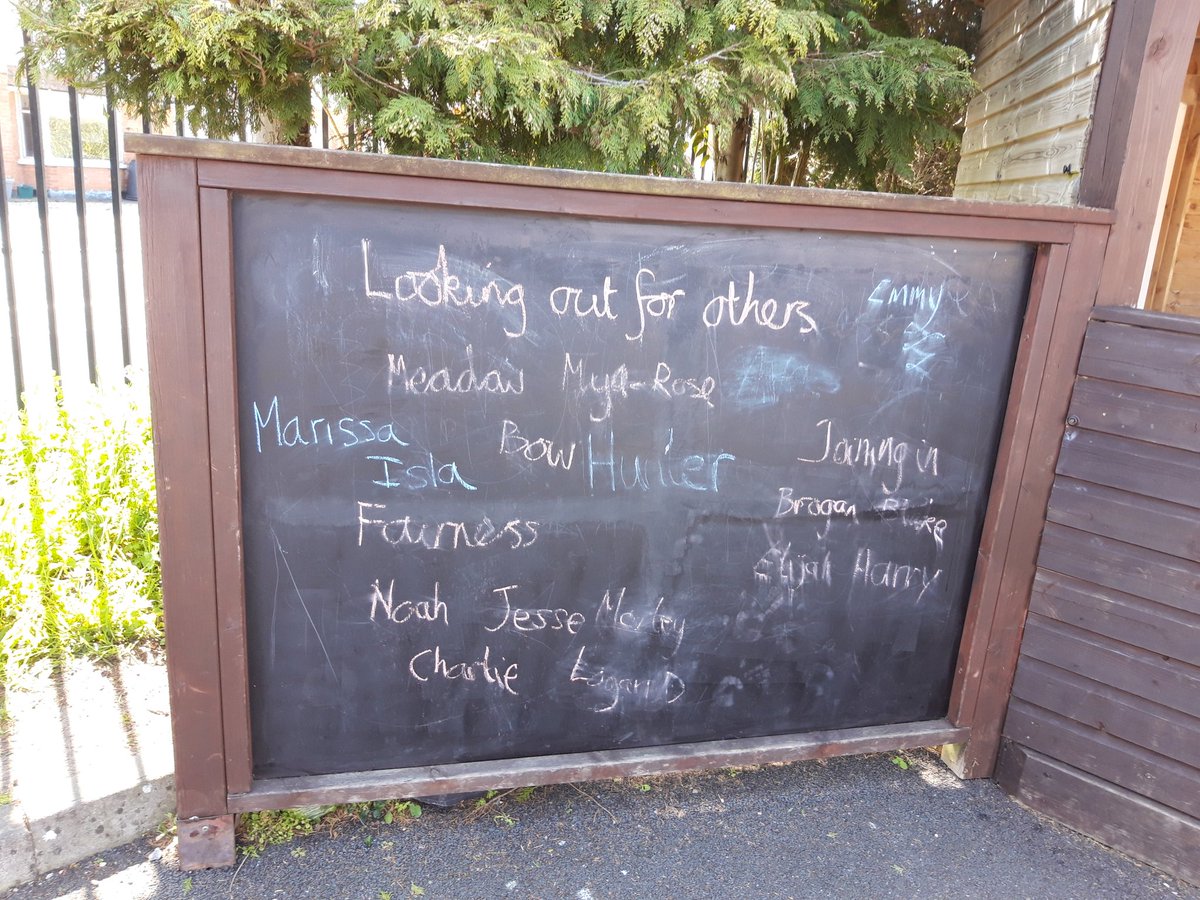 Looking out for others Emmy
Meadow Mya-Rose
Marissa Bow Hunter Joining in
Isla
Fairness Brogan
Elijah Harry
Noah Jesse Marley
Charlie Logan D